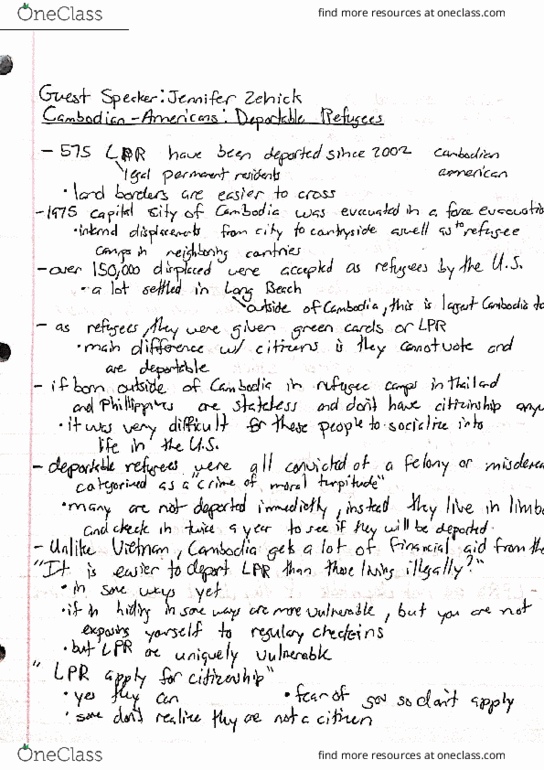 OneClass
find more resources at oneclass.com
Guest Speaker: Jennifer Zelnick
Cambodian-Americans: Deportable Refugees
- 575 LPR have been deported since 2002 Cambodian
legal permanent residents american
• land borders are easier to cross
- 1975 capital city of Cambodia was evacuated in a force
• internal displacements from city to countryside aswell as to refugee
camps in neighboring contries
- over 150,000 displaced were accepted as refugees by the U.S.
• a lot settled in Long Beach
outside of Cambodia, this is largest Cambodia
- as refugees, they were given green cards or LPR
• main difference w/ citizens is they cannot vote and
are deportable
- if born outside of Cambodia in refugee camps in Thailand
and Phillippines are stateless and don't have citizenship
• it was very difficult for these people to socialize into
life in the U.S.
- deportable refugees were all convicted of a felony or
categorized as a "crime of moral turpitude"
• many are not deported immediatly, instead they live in limbo
and check in twice a year to see if they will be deported.
- Unlike Vietnam, Cambodia gets a lot of financial aid from the
"It is easier to deport LPR than those living illegally?"
• in some ways yet
• if in hiding in some ways are more vulnerable, but you are not
exposing yourself to regulary checkins
• but LPR are uniquely vulnerable
"LPR apply for citizenship"
• yes they can • fear of gov so don't apply
• some don't realize they are not a citizen
OneClass
find more resources at oneclass.com